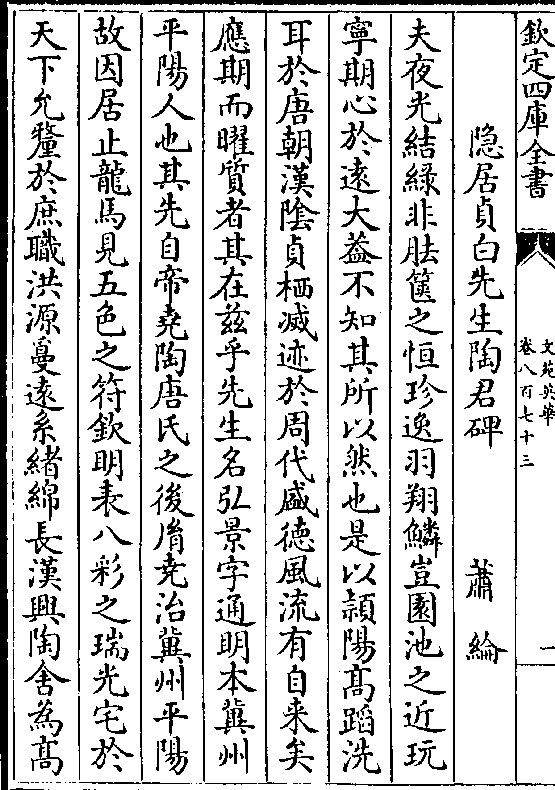 欽定四庫全書
文苑英華
卷八百七十三
一
隐居貞白先生陶君碑 蕭綸
夫夜光結緑非胠篋之恒珍逸羽翔鱗豈園池之近玩
寧期心於逺大葢不知其所以然也是以頴陽髙蹈洗
耳於唐朝漢陰貞栖滅迹於周代盛徳風流有自来矣
應期而曜質者其在兹乎先生名弘景字通明本冀州
平陽人也其先自帝堯陶唐氏之後胤堯治冀州平陽
故因居止龍馬見五色之符欽明表八彩之瑞光宅於
天下允釐於庶職洪源敻逺系緒綿長漢興陶舍為髙